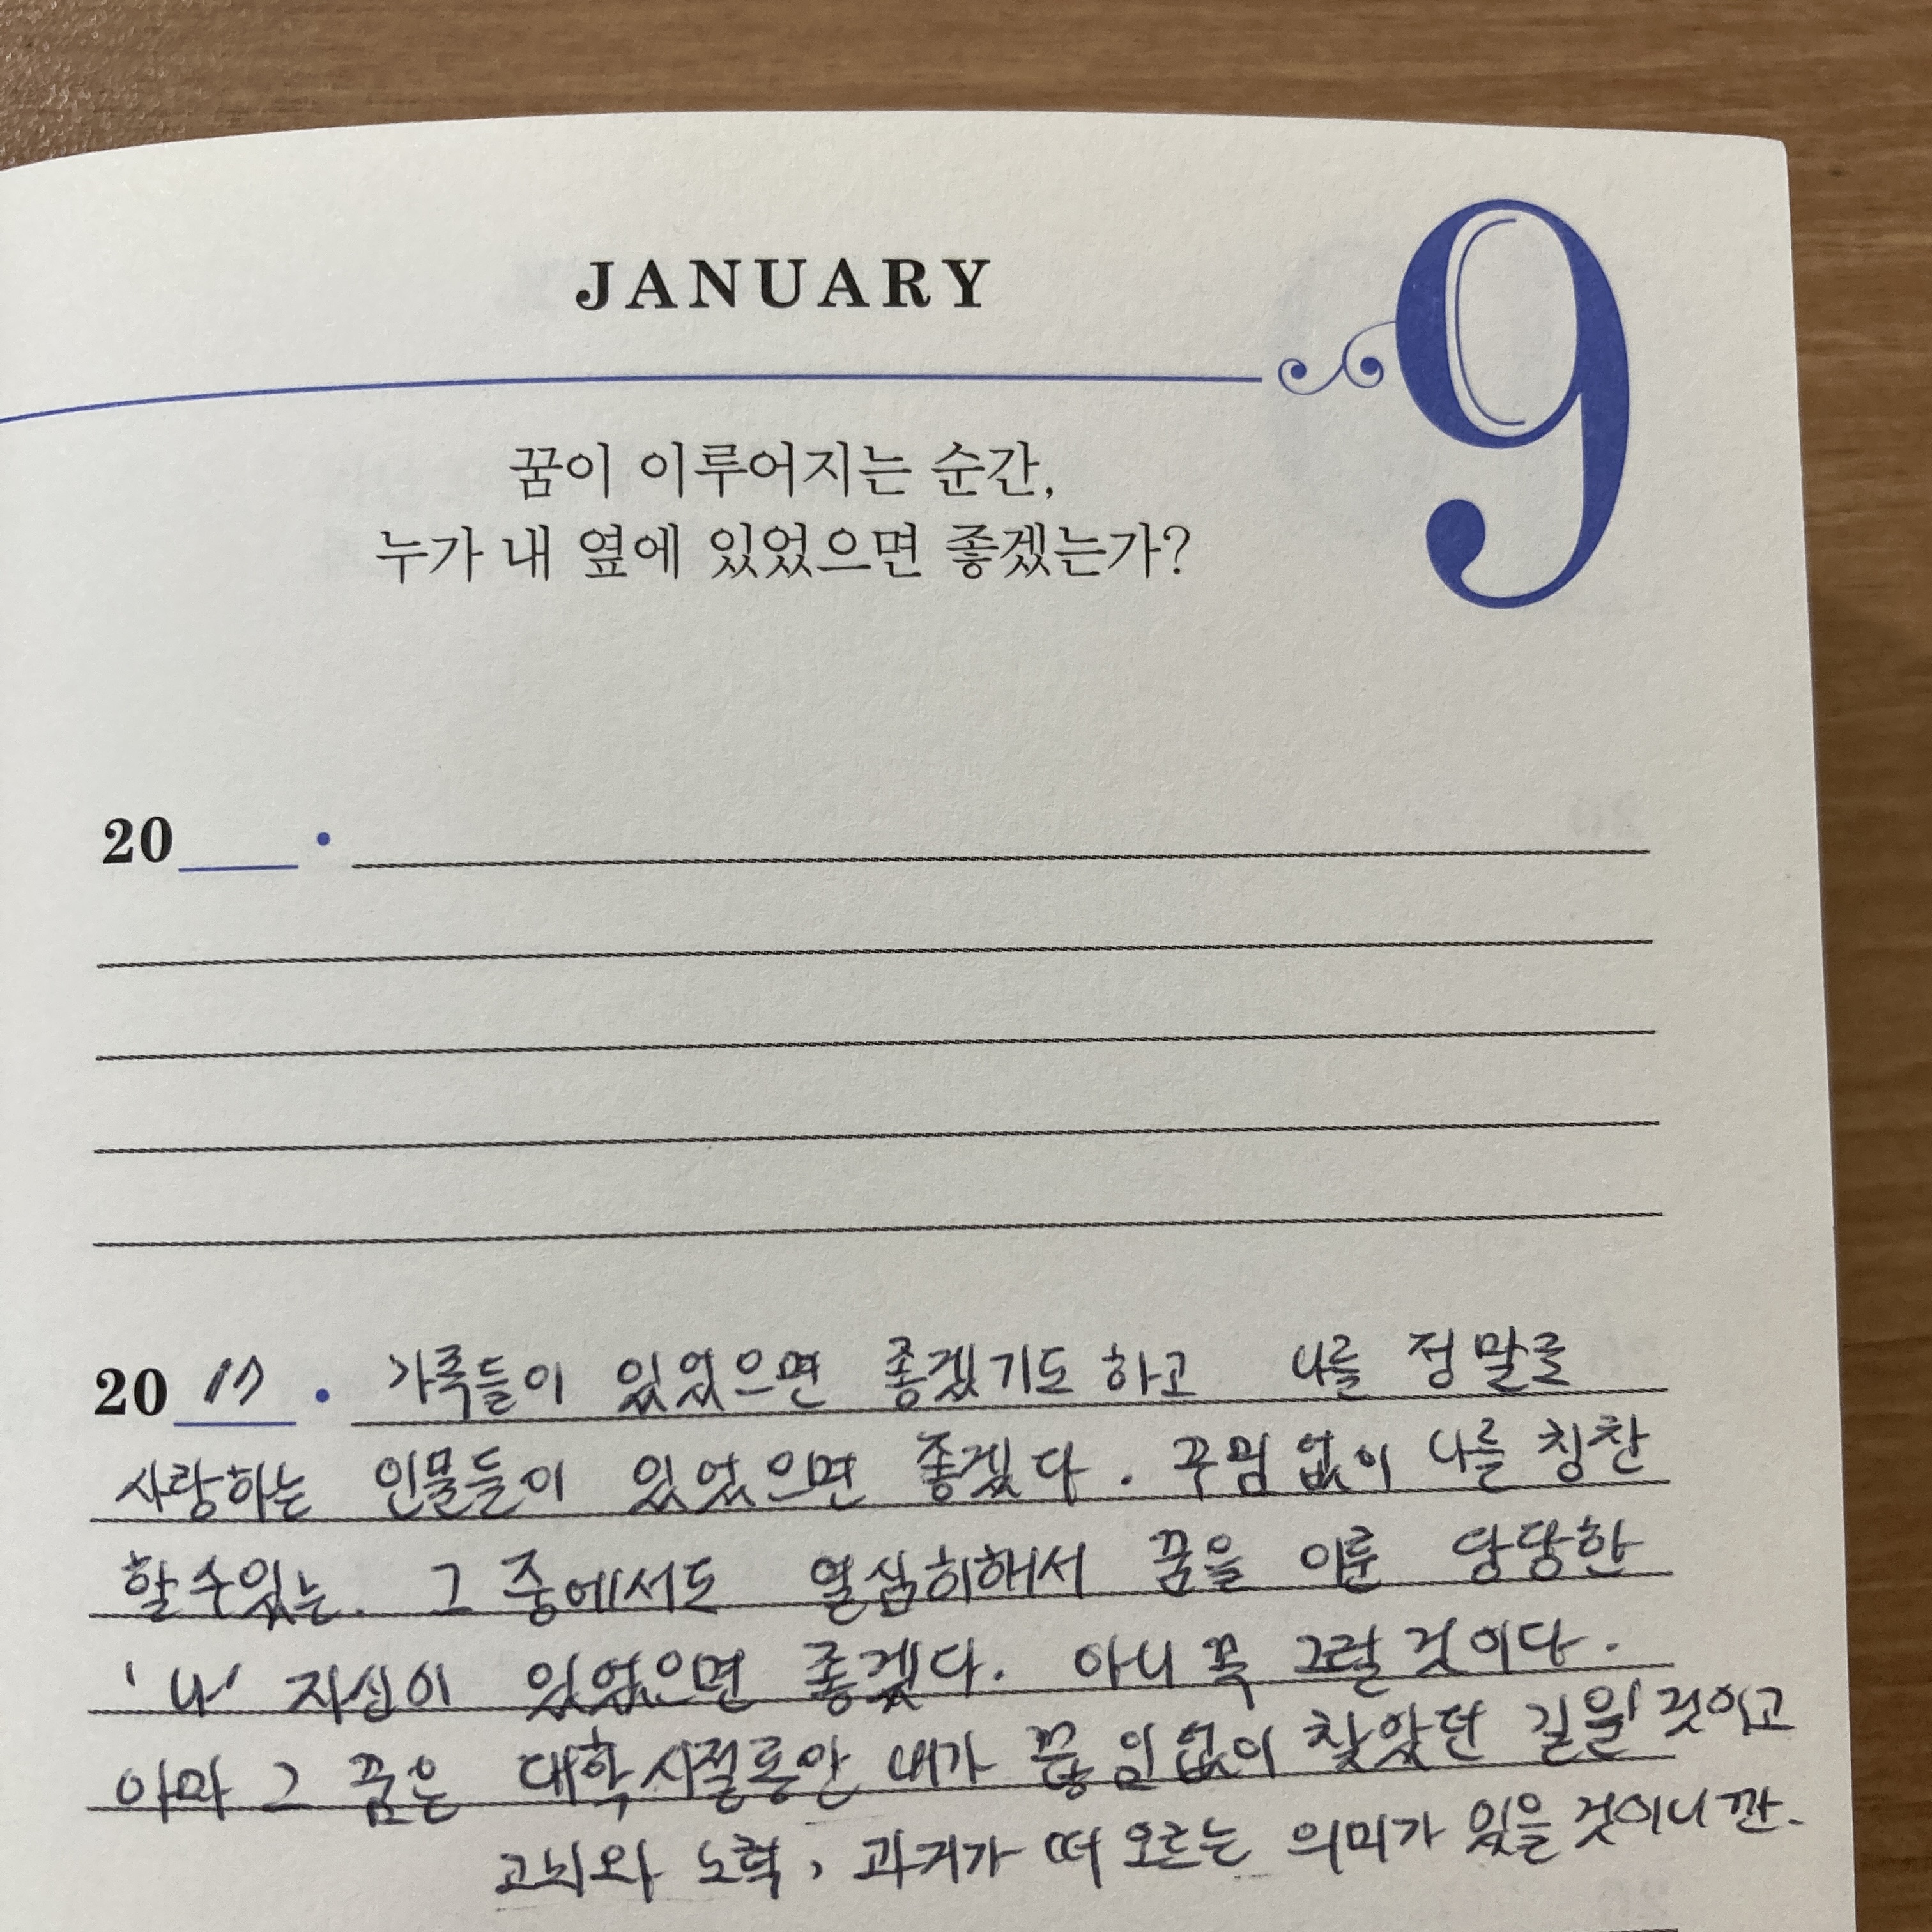 JANUARY
9
꿈이 이루어지는 순간,
누가 내 옆에 있었으면 좋겠는가?
20 ·
20 17 · 가족들이 있었으면 좋겠기도 하고 나를 정말로
사랑하는 인물들이 있었으면 좋겠다. 꾸밈없이 나를 칭찬
할 수 있는. 그 중에서도 열심히해서 꿈을 이룬 당당한
'나' 자신이 있었으면 좋겠다. 아니 꼭 그럴 것이다.
아마 그 꿈은 대학시절동안 내가 끊임없이 찾았던 길일 것이고
고뇌와 노력, 과거가 떠오르는 의미가 있을 것이니깐.